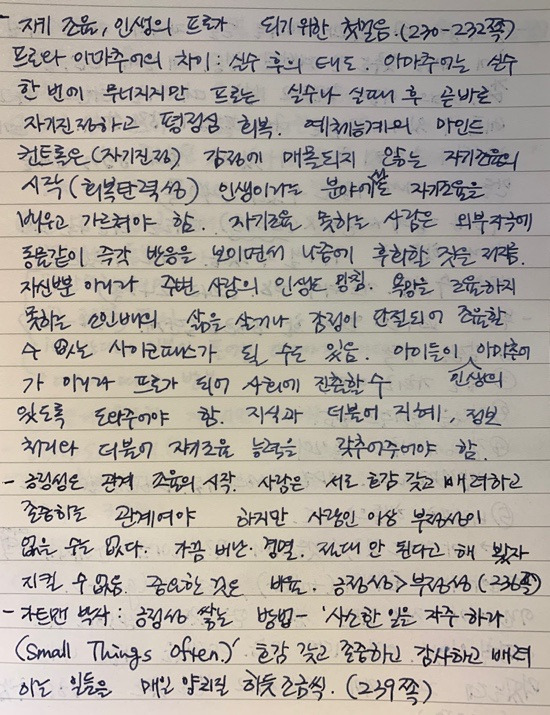 - 자기 조율, 인생의 프로가 되기 위한 첫걸음. (230-232쪽)
프로와 아마추어의 차이 : 실수 후의 태도. 아마추어는 실수
한 번에 무너지지만 프로는 실수나 실패 후 곧바로
자기진정하고 평정심 회복. 예체능계의 마인드
컨트롤은 (자기진정) 감정에 매몰되지 않는 자기조율의
시작 (회복탄력성) 인생이라는 분야에서도 자기조율을
배우고 가르쳐야 함. 자기조율 못하는 사람은 외부자극에
동물같이 즉각 반응을 보이면서 나중에 후회할 짓을 저지름.
자신뿐 아니라 주변 사람의 인생도 망침. 욕망을 조율하지
못하는 소인배의 삶을 살거나 감정이 단절되어 조율할
수 없는 사이코패스가 될 수도 있음. 아이들이 인생의 아마추어
가 아니라 프로가 되어 사회에 진출할 수
있도록 도와주어야 함. 지식과 더불어 지혜, 정보
처리와 더불어 자기조율 능력을 갖추어주어야 함.
- 긍정성은 관계 조율의 시작. 사람은 서로 호감 갖고 배려하고
존중하는 관계여야 하지만 사람인 이상 부정성이
없을 수는 없다. 가끔 비난·경멸. 절대 안 된다고 해 봤자
지킬 수 없음. 중요한 것은 비율. 긍정성>부정성 (236쪽)
- 가트맨 박사 : 긍정성 쌓는 방법 - '사소한 일을 자주 하라
(Small Things Often.)' 호감 갖고 존중하고 감사하고 배려
하는 일들을 매일 양치질 하듯 조금씩. (239쪽)